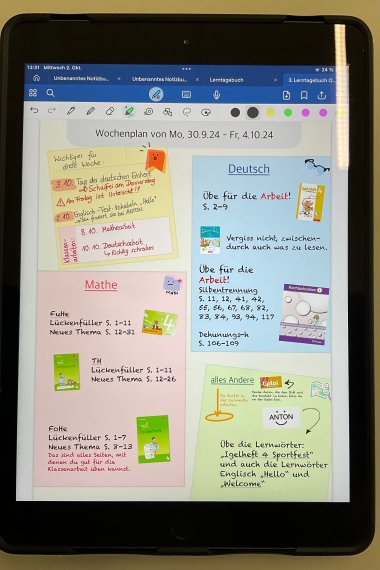 13:31 Mittwoch 2. Okt.
24 %
Unbenanntes Notizbu...
Unbenanntes Notizbu...
Lerntagebuch
3. Lerntagebuch O...
Wochenplan von Mo, 30.9.24 – Fr, 4.10.24
Wichtiges für
diese Woche:
3.10. Tag der deutschen Einheit
Schulfrei am Donnerstag
Am Freitag ist Unterricht!!
2.10. Englisch-Test: Vokabeln „Hello"
bei ANTON.
Klassen-
arbeiten:
8.10. Mathearbeit
10.10. Deutscharbeit
Richtig schreiben
Deutsch
Übe für die Arbeit!
S. 2-9
Vergiss nicht, zwischen-
durch auch was zu lesen.
Übe für die
Arbeit!
Silbentrennung
S. 11, 12, 41, 42,
55, 56, 67, 68, 82,
83, 84, 93, 94, 117
Dehnungs-h
S. 106-109
Mathe
MATH
FuHe
Lückenfüller S. 1-11
Neues Thema S. 12-31
4
TH
Lückenfüller S. 1-11
Neues Thema S. 12-26
FoHe
Lückenfüller S. 1-7
Neues Thema S. 8-13
Das sind alles Seiten, mit
denen du gut für die
Klassenarbeit üben kannst.
alles Andere
tiptoi
ANTON
Übe die Lernwörter:
„Igelheft 4 Sportfest"
und auch die Lernwörter
Englisch „Hello" und
„Welcome"